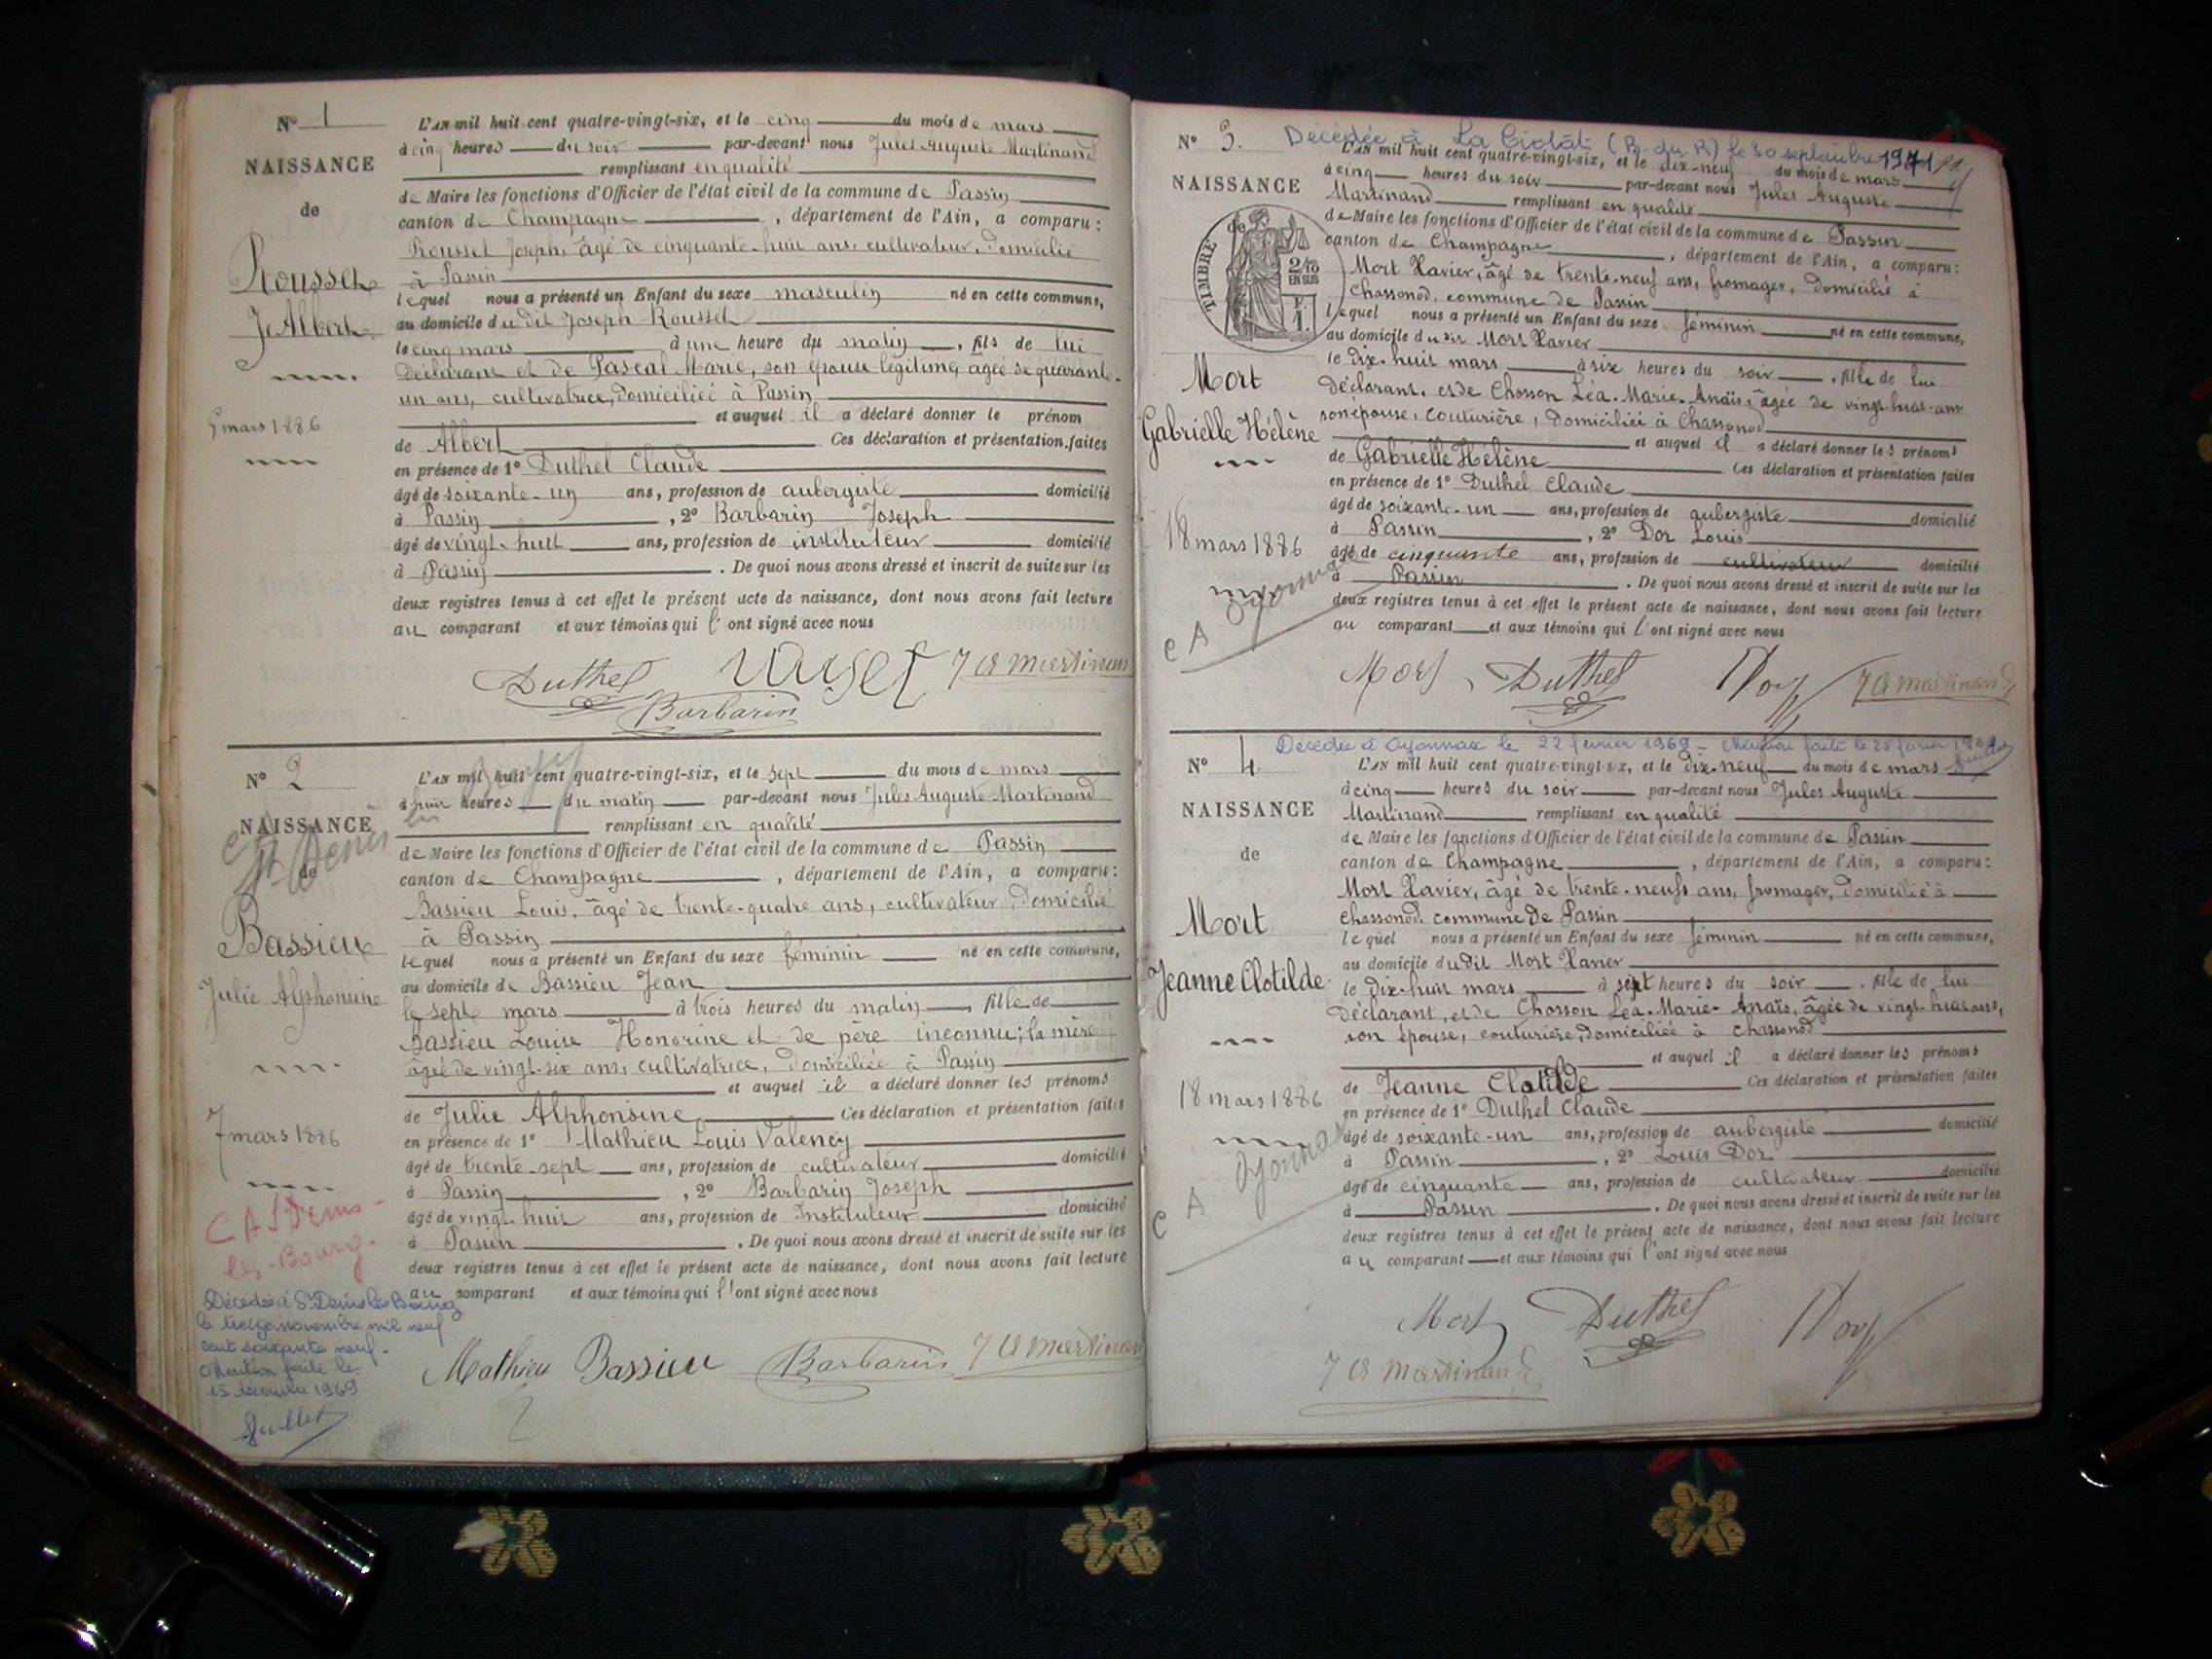 N° 1
NAISSANCE
de
Roussel
Albert
5 mars 1886
L'AN mil huit cent quatre-vingt-six, et le cinq du mois de mars
à cinq heures du soir par-devant nous Jules Auguste Martinand
remplissant en qualité
de Maire les fonctions d'Officier de l'état civil de la commune de Passin
canton de Champagne, département de l'Ain, a comparu :
Roussel Joseph, âgé de cinquante-huit ans, cultivateur, domicilié
à Passin
lequel nous a présenté un Enfant du sexe masculin né en cette commune,
au domicile du dit Joseph Roussel
le cinq mars à une heure du matin, fils de lui
déclarant et de Pascal Marie, son épouse légitime, âgée de quarante-
un ans, cultivatrice, domiciliée à Passin
et auquel il a déclaré donner le prénom
de Albert Ces déclaration et présentation faites
en présence de 1° Duthel Claude
âgé de soixante-un ans, profession de aubergiste domicilié
à Passin, 2° Barbarin Joseph
âgé de vingt-huit ans, profession de instituteur domicilié
à Passin. De quoi nous avons dressé et inscrit de suite sur les
deux registres tenus à cet effet le présent acte de naissance, dont nous avons fait lecture
au comparant et aux témoins qui l'ont signé avec nous
Duthel J A Martinand
Barbarin
N° 2
NAISSANCE
de
St Denis
Bassieu
Julie Alphonsine
7 mars 1886
C A St Denis-
les-Bourg.
Décédée à St Denis les Bourg
le treize novembre mil neuf
cent soixante neuf.
Mention faite le
15 décembre 1969
L'AN mil huit cent quatre-vingt-six, et le sept du mois de mars
à huit heures du matin par-devant nous Jules Auguste Martinand
remplissant en qualité
de Maire les fonctions d'Officier de l'état civil de la commune de Passin
canton de Champagne, département de l'Ain, a comparu :
Bassieu Louis, âgé de trente-quatre ans, cultivateur, domicilié
à Passin
lequel nous a présenté un Enfant du sexe féminin né en cette commune,
au domicile de Bassieu Jean
le sept mars à trois heures du matin, fille de
Bassieu Louise Honorine et de père inconnu; la mère
âgée de vingt-six ans, cultivatrice, domiciliée à Passin
et auquel il a déclaré donner les prénoms
de Julie Alphonsine Ces déclaration et présentation faites
en présence de 1° Mathieu Louis Valency
âgé de trente-sept ans, profession de cultivateur domicilié
à Passin, 2° Barbarin Joseph
âgé de vingt-huit ans, profession de Instituteur domicilié
à Passin. De quoi nous avons dressé et inscrit de suite sur les
deux registres tenus à cet effet le présent acte de naissance, dont nous avons fait lecture
au comparant et aux témoins qui l'ont signé avec nous
Mathieu Bassieu Barbarin J A Martinand
Décédée à La Ciotat (B. du R) le 30 septembre 1971
N° 3.
NAISSANCE
de
TIMBRE
2/10
EN SUS
F.
1.
Mort
Gabrielle Hélène
18 mars 1886
Oyonnax
C A
L'AN mil huit cent quatre-vingt-six, et le dix-neuf du mois de mars
à cinq heures du soir par-devant nous Jules Auguste
Martinand remplissant en qualité
de Maire les fonctions d'Officier de l'état civil de la commune de Passin
canton de Champagne, département de l'Ain, a comparu :
Mort Xavier, âgé de trente-neuf ans, fromager, domicilié à
Chassonod, commune de Passin
lequel nous a présenté un Enfant du sexe féminin né en cette commune,
au domicile du dit Mort Xavier
le dix-huit mars à six heures du soir, fille de lui
déclarant, et de Chosson Léa-Marie-Anaïs, âgée de vingt-huit ans
son épouse, couturière, domiciliée à Chassonod
et auquel il a déclaré donner les prénoms
de Gabrielle Hélène Ces déclaration et présentation faites
en présence de 1° Duthel Claude
âgé de soixante-un ans, profession de aubergiste domicilié
à Passin, 2° Dor Louis
âgé de cinquante ans, profession de cultivateur domicilié
à Passin. De quoi nous avons dressé et inscrit de suite sur les
deux registres tenus à cet effet le présent acte de naissance, dont nous avons fait lecture
au comparant et aux témoins qui l'ont signé avec nous
Mort Duthel Dor J A Martinand
Décédée à Oyonnax le 22 février 1969 - Mention faite le 28 février 1969
N° 4.
NAISSANCE
de
Mort
Jeanne Clotilde
18 mars 1886
Oyonnax
C A
L'AN mil huit cent quatre-vingt-six, et le dix-neuf du mois de mars
à cinq heures du soir par-devant nous Jules Auguste
Martinand remplissant en qualité
de Maire les fonctions d'Officier de l'état civil de la commune de Passin
canton de Champagne, département de l'Ain, a comparu :
Mort Xavier, âgé de trente-neufs ans, fromager, domicilié à
Chassonod, commune de Passin
lequel nous a présenté un Enfant du sexe féminin né en cette commune,
au domicile du dit Mort Xavier
le dix-huit mars à sept heures du soir, fille de lui
déclarant, et de Chosson Léa-Marie-Anaïs, âgée de vingt-huit ans,
son épouse, couturière, domiciliée à Chassonod
et auquel il a déclaré donner les prénoms
de Jeanne Clotilde Ces déclaration et présentation faites
en présence de 1° Duthel Claude
âgé de soixante-un ans, profession de aubergiste domicilié
à Passin, 2° Louis Dor
âgé de cinquante ans, profession de cultivateur domicilié
à Passin. De quoi nous avons dressé et inscrit de suite sur les
deux registres tenus à cet effet le présent acte de naissance, dont nous avons fait lecture
au comparant et aux témoins qui l'ont signé avec nous
Mort Duthel Dor
J A Martinand